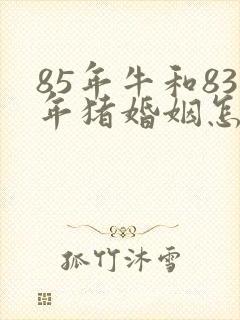 85年牛和83
年猪婚姻怎
孤竹沐雪